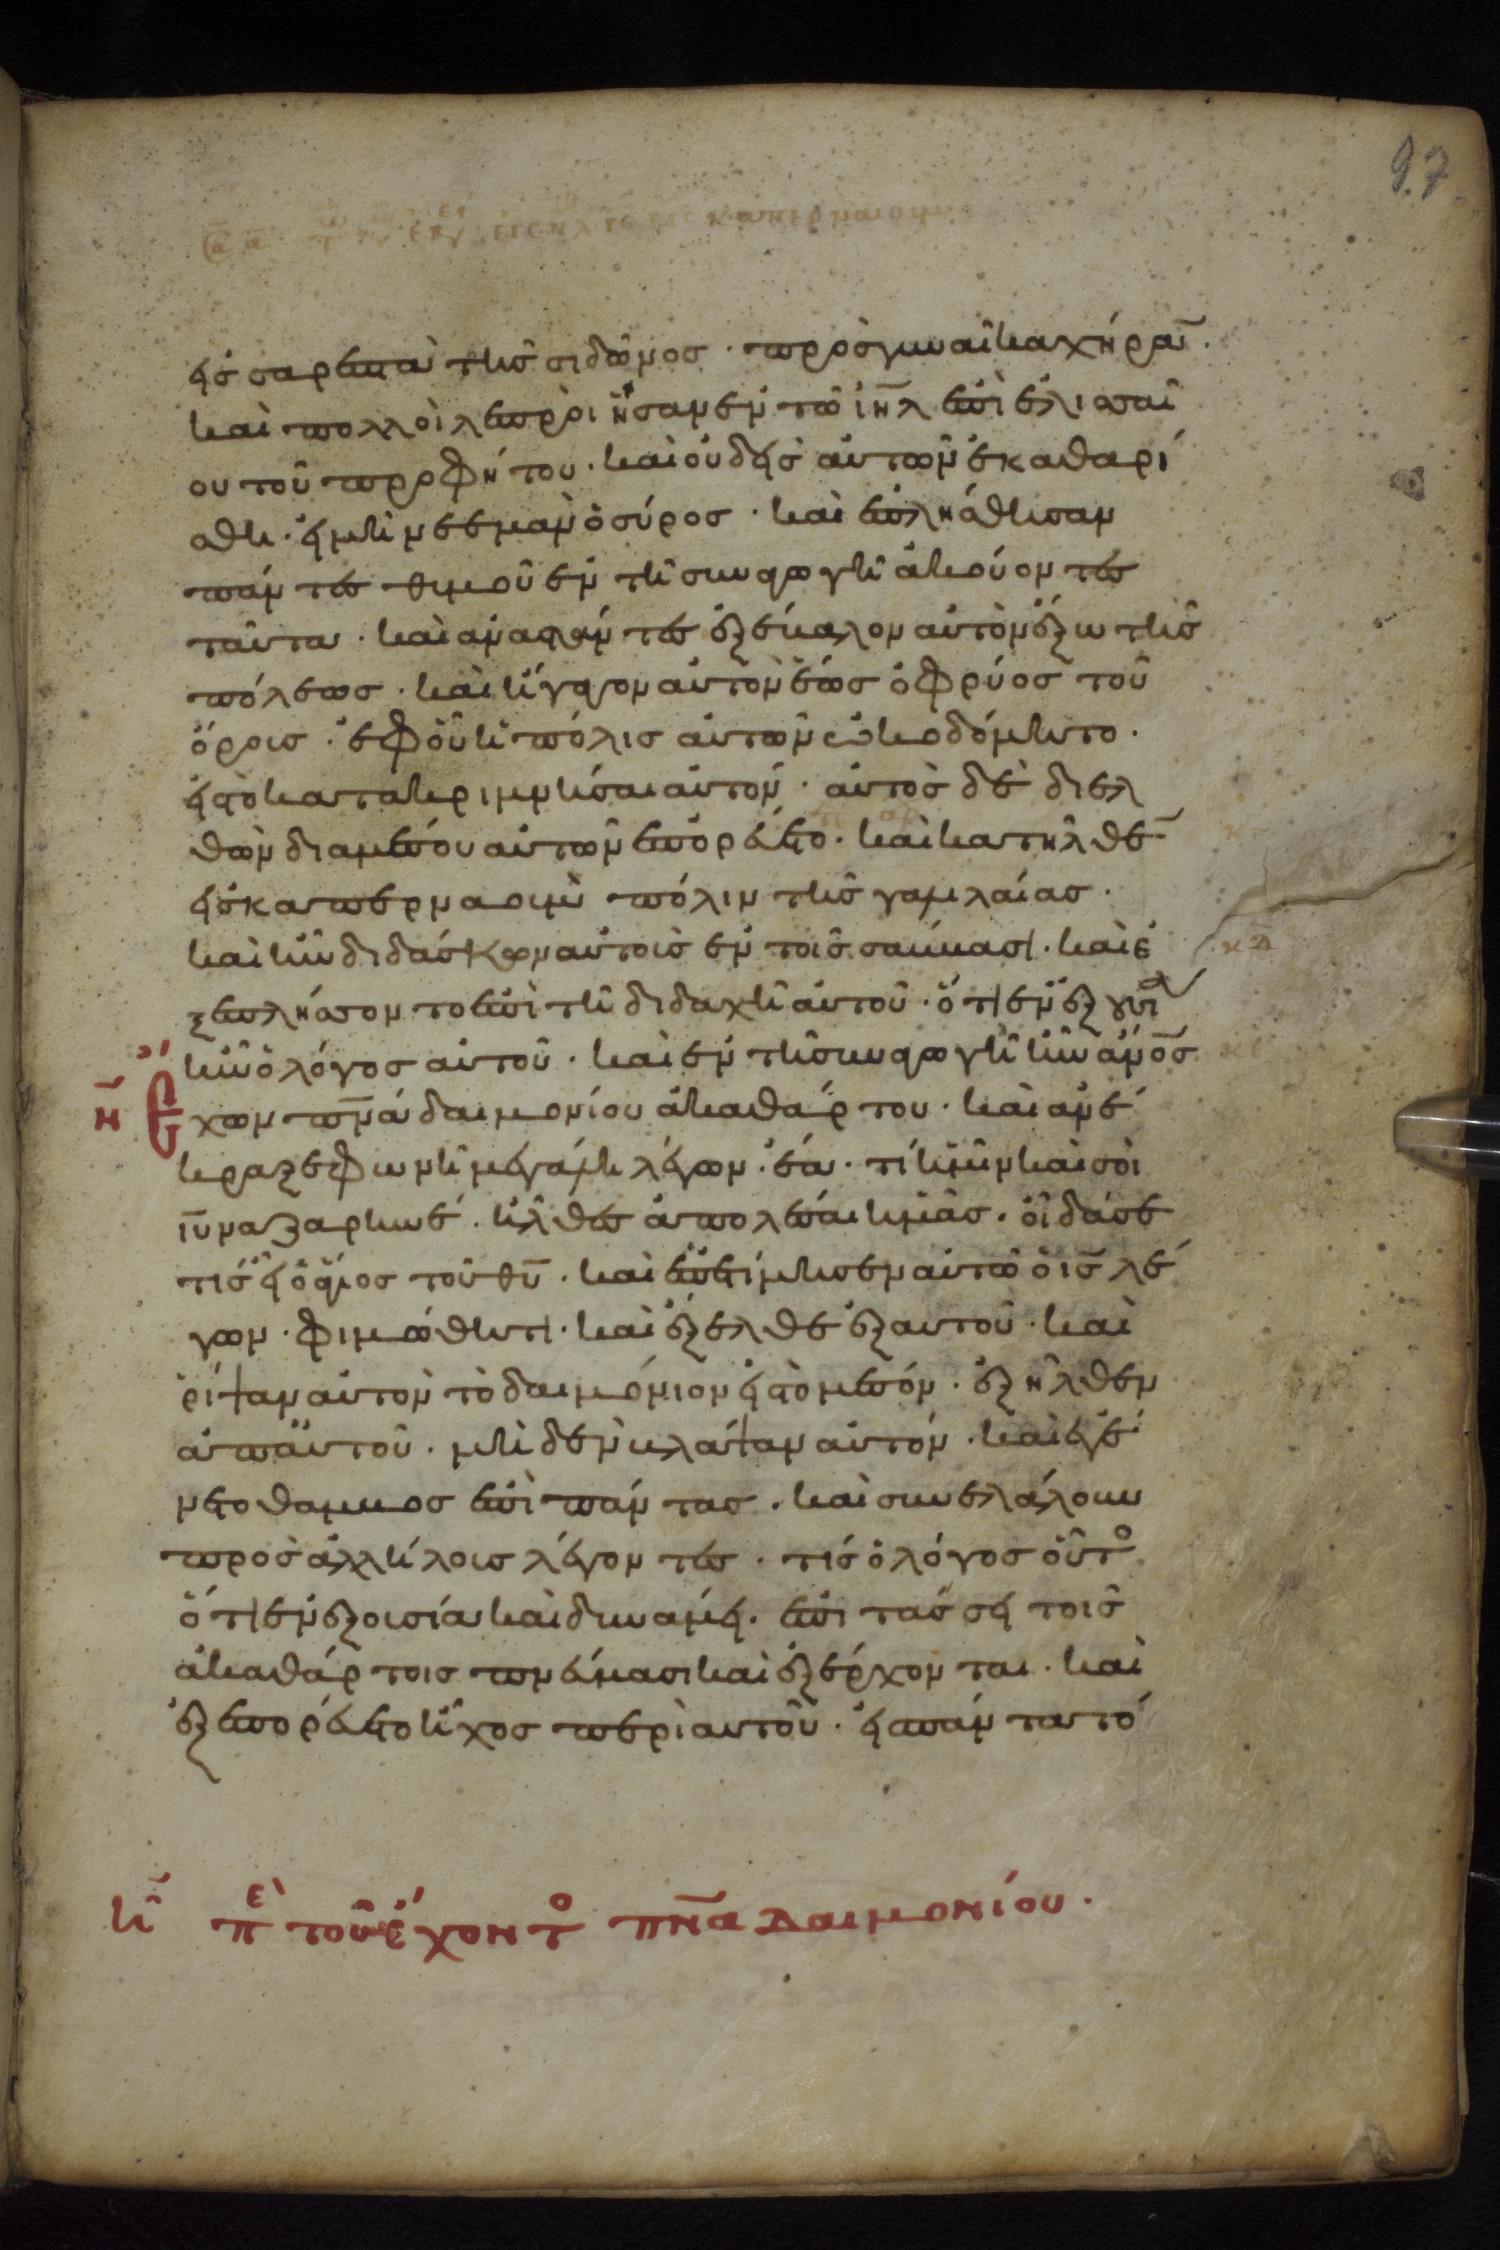 97
εἰς σαρεπτὰ τῆς σιδῶνος · πρὸς γυναῖκα χήραν̅ ·
καὶ πολλοὶ λεπροὶ ἦσαν ἐν τῶ ἰη̅λ ἐπὶ ἐλισσαί
ου τοῦ προφήτου · καὶ οὐδεὶς αὐτῶν ἐκαθαρί
σθη · εἰ μὴ νεεμὰν ὁ σύρος · καὶ ἐπλήσθησαν
πάντες θυμοῦ ἐν τῆ συναγωγῆ ἀκούοντες
ταῦτα · καὶ ἀναστάντες ἐξέβαλον αὐτὸν ἔξω τῆς
πόλεως · καὶ ἤγαγον αὐτὸν ἕως ὀφρύος τοῦ
ὄρους · ἐφ οὗ ἡ πόλις αὐτῶν ὠκοδόμητο ·
εἰς τὸ κατακριμνῆσαι αὐτόν · αὐτὸς δὲ διελ
θὼν διὰ μέσου αὐτῶν ἐπορεύετο · καὶ κατῆλθε̅
εἰς καπερναοὺμ πόλιν τῆς γαλιλαίας ·
καὶ ἦν διδάσκων αὐτοὺς ἐν τοῖς σάββασι · καὶ ἐ
ξεπλήσσοντο ἐπὶ τῆ διδαχῆ αὐτοῦ · ὅτι ἐν ἐξουσία
ἦν ὁ λόγος αὐτοῦ · καὶ ἐν τῆ συναγωγῆ ἦν ἄνο̅ς
η̅ ἔχων πν̅α δαιμονίου ἀκαθάρτου · καὶ ἀνέ
κραξε φωνῆ μεγάλη λέγων · ἔα · τί ἡμῖν καὶ σοὶ
ιυ̅ ναζαρηνέ · ἦλθες ἀπολέσαι ἡμᾶς · οἶδά σε
τίς εἶ ὁ ἅγιος τοῦ θυ̅ · καὶ ἐπετίμησεν αὐτῶ ὁ ις̅ λέ
γων · φιμώθητι · καὶ ἔξελθε ἐξ αυτοῦ · καὶ
ῥίψαν αὐτὸν τὸ δαιμόνιον εἰς τὸ μέσον · ἐξῆλθεν
ἀπ αὐτοῦ · μηδὲν βλάψαν αὐτόν · καὶ ἐγέ
νετο θάμβος ἐπὶ πάντας · καὶ συνελάλουν
πρὸς ἀλλήλους λέγοντες · τίς ὁ λόγος οὗτο
ὅτι ἐν ἐξουσία καὶ δυνάμει · ἐπιτάσσει τοῖς
ἀκαθάρτοις πνεύμασι καὶ ἐξέρχονται · καὶ
ἐξεπορεύετο ἦχος περὶ αυτοῦ · εἰς πάντα τό
η̅ πε τοῦ ἔχοντο πν̅α δαιμονίου ·